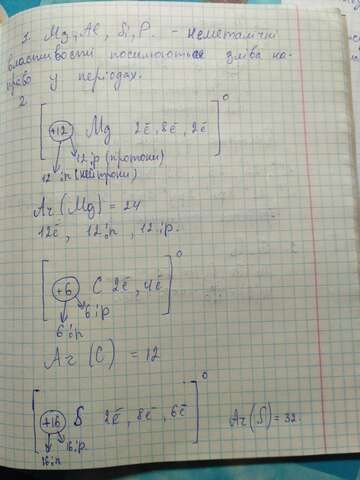 1. Mg, Al, Si, P. - Неметалічні
властивості посилюються зліва на-
право у періодах.
2.
0
+12 Mg 2ē, 8ē, 2ē
12 ¹₁p (протони)
12 ¹₀n (нейтрони)
Ar (Mg) = 24
12ē, 12 ¹₀n, 12 ¹₁p.
0
+6 C 2ē, 4ē
6 ¹₁p
6 ¹₀n
Ar (C) = 12
0
+16 S 2ē, 8ē, 6ē Ar (S) = 32.
16 ¹₁p
16 ¹₀n